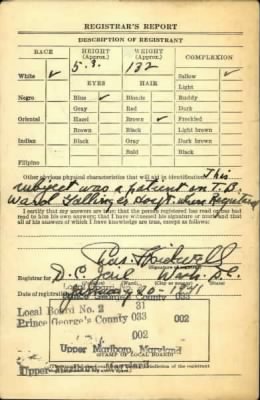 REGISTRAR'S REPORT
DESCRIPTION OF REGISTRANT
RACE HEIGHT (Approx.) WEIGHT (Approx.) COMPLEXION
5.8. 132
White ✓ Sallow ✓
EYES HAIR Light
Negro Blue ✓ Blonde Ruddy
Gray Red Dark
Oriental Hazel Brown ✓ Freckled
Brown Black Light brown
Indian Black Gray Dark brown
Bald Black
Filipino
Other obvious physical characteristics that will aid in identification This
subject was a patient in T.B.
Ward Gallinger Hospt. where Registered
I certify that my answers are true; that the person registered has read or has had
read to him his own answers; that I have witnessed his signature or mark and that
all of his answers of which I have knowledge are true, except as follows:
Registrar for D.C. Jail Wash. D.C.
Date of registration
Local Board No. 2 033
31
Prince George's County 033
002
002
Upper Marlboro, Maryland
(STAMP OF LOCAL BOARD)